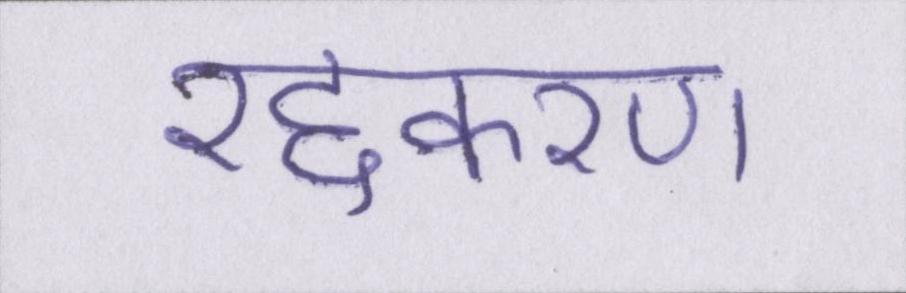 रद्दकरण